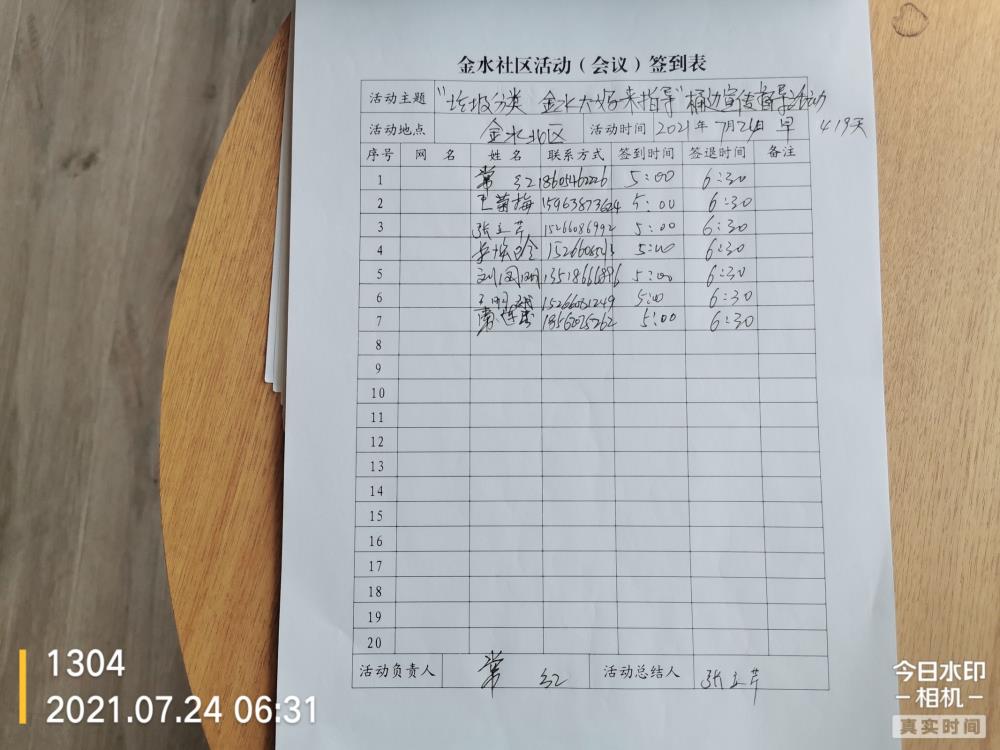 金水社区活动（会议）签到表
活动主题 "垃圾分类 金水大妈来指导"桶边宣传督导活动
活动地点 金水北区 活动时间 2021年7月24日 早 419天
序号 网 名 姓 名 联系方式 签到时间 签退时间 备注
1 常 红 18605462226 5:00 6:30
2 王菊梅 15963873624 5:00 6:30
3 张立芹 15266086992 5:00 6:30
4 5:00 6:30
5 刘国明 13518666896 5:00 6:30
6 15266031249 5:00 6:30
7 18562025262 5:00 6:30
8
9
10
11
12
13
14
15
16
17
18
19
20
活动负责人 常 红 活动总结人 张立芹
1304
2021.07.24 06:31
今日水印
相机
真实时间